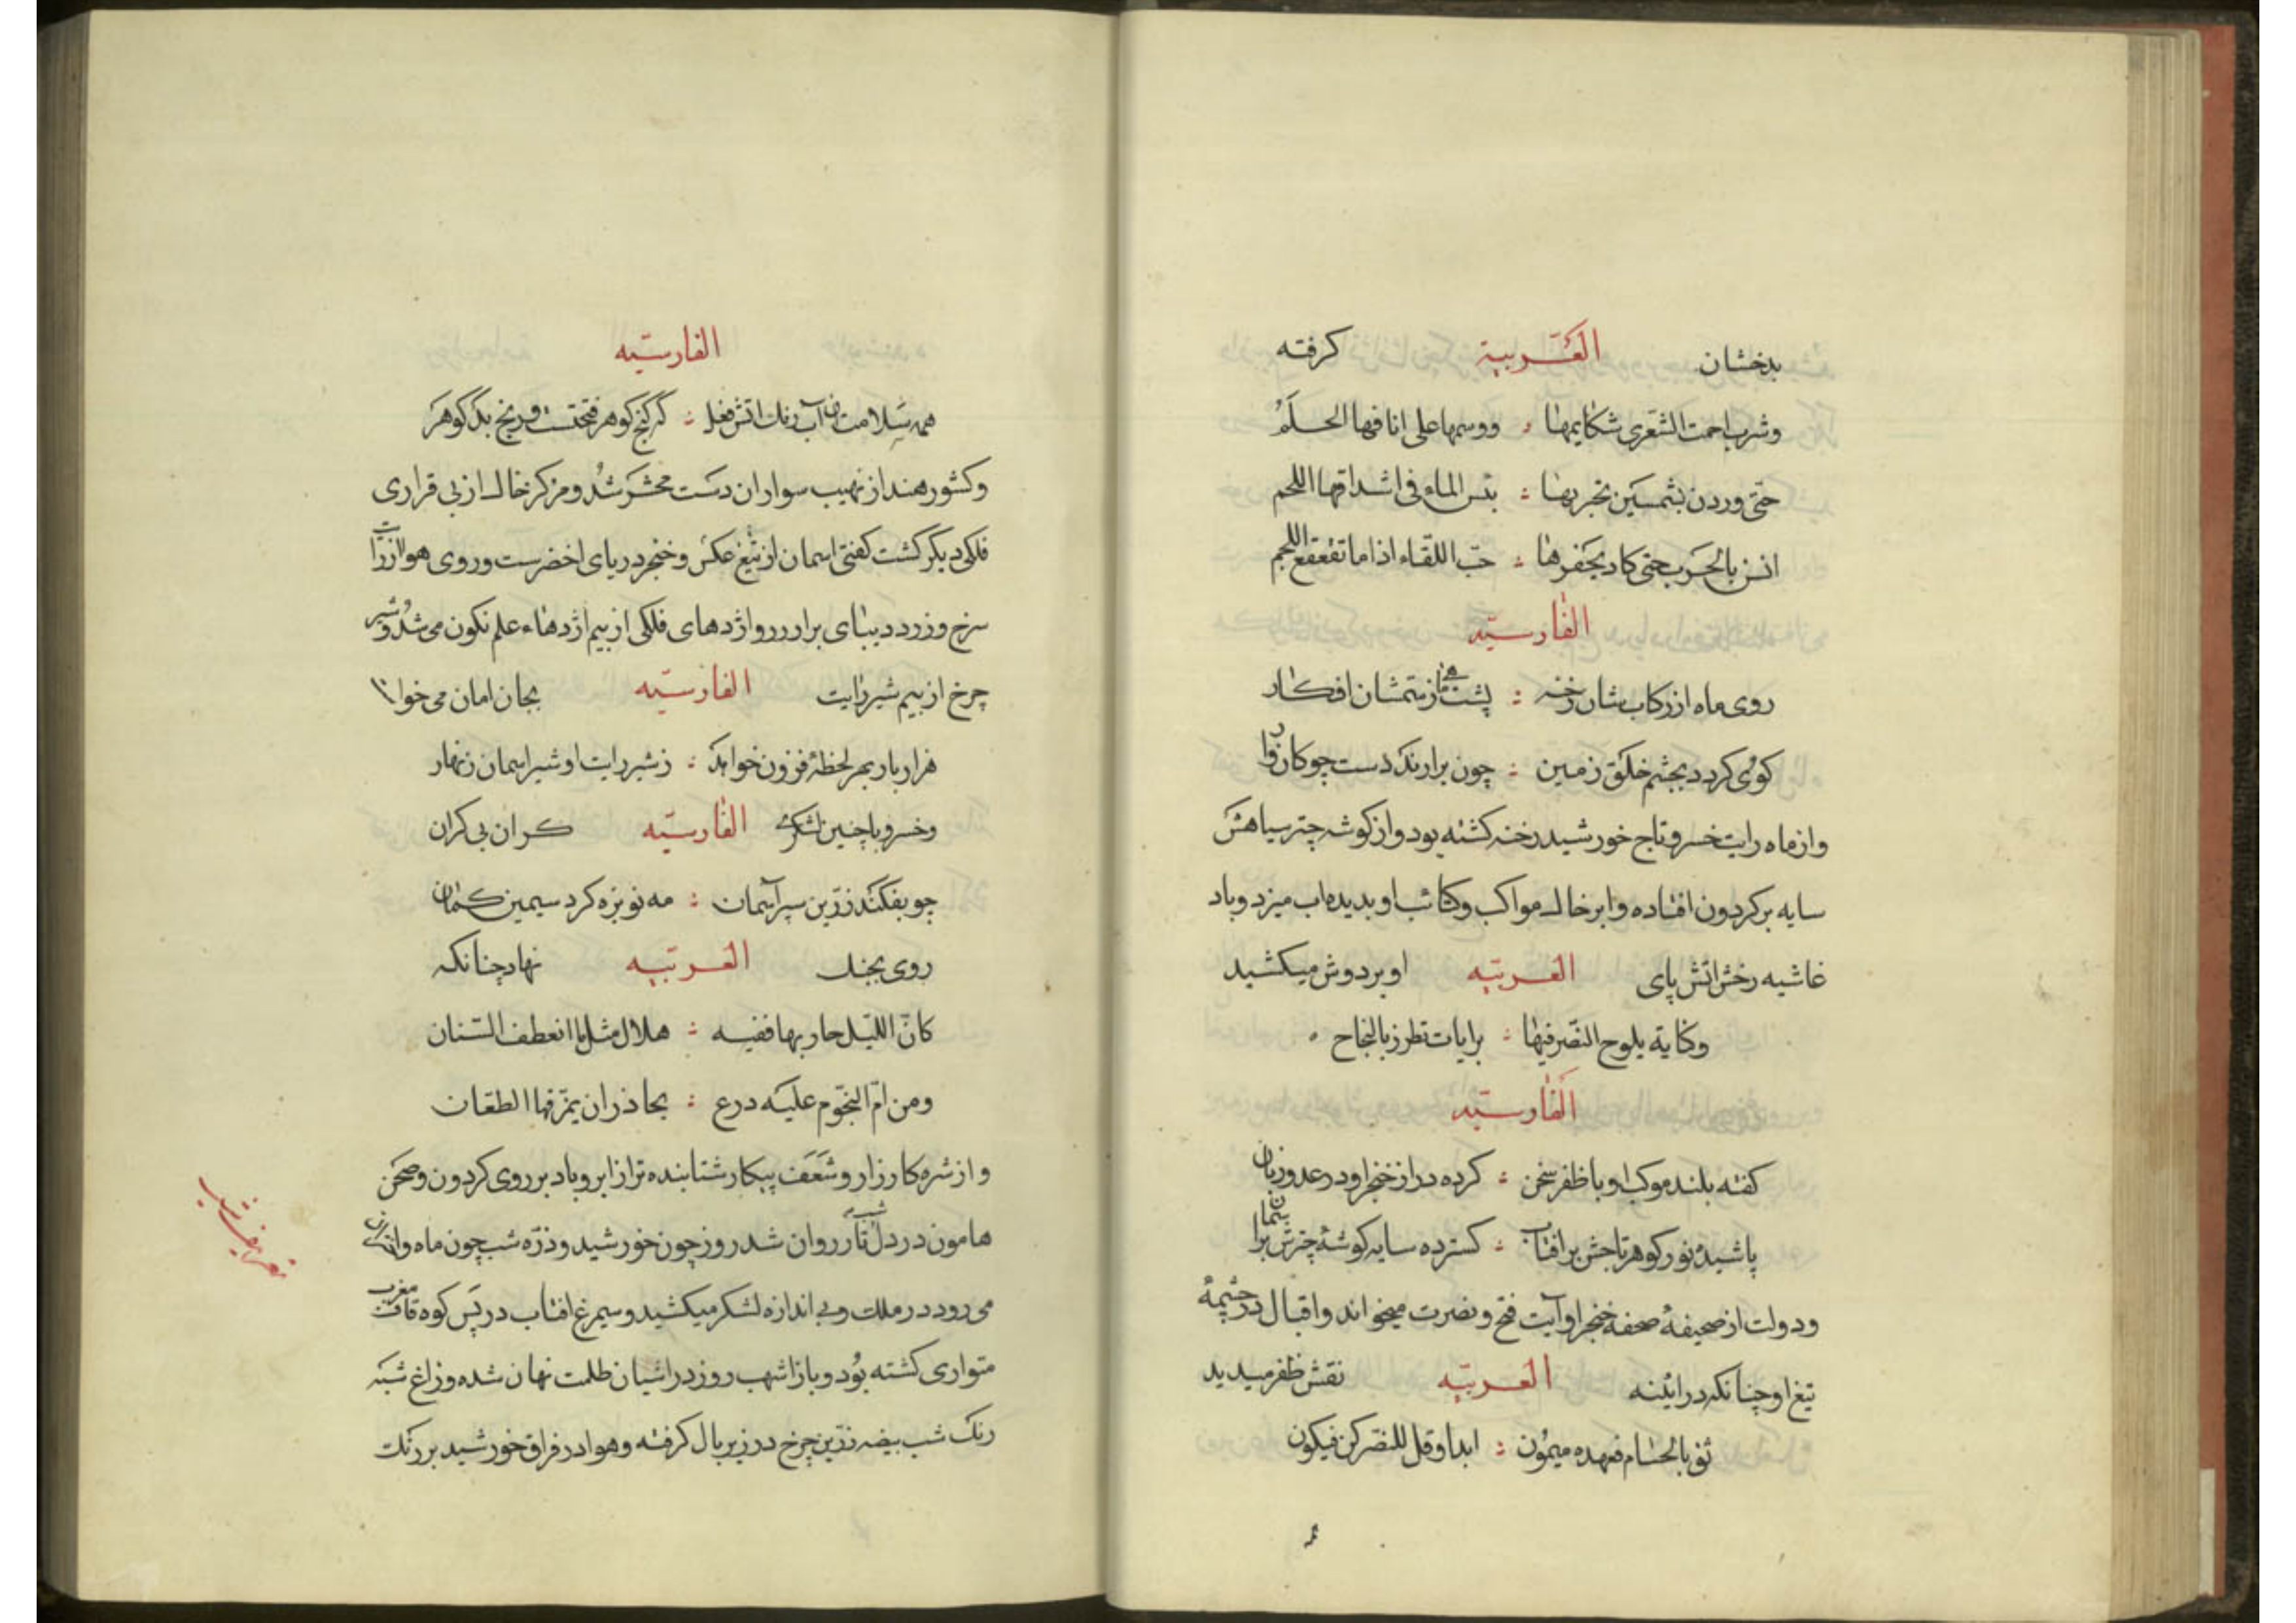 بدخشان العربیة کرفته
وشرب احمت الشعری شکایمها ووسمها علی انافها الحلم
حتی وردن بشمسین بحیرتها بتس الماء فی اشداقها اللحم
انسن بالحرب حتی کاد یحفزها حب اللقاء اذا ما تقعقع اللجم
الفارسیّه
روی ماه از رکاب شان رخنه پشت ماهی از سمشان افکار
کوی کردد بجشم خلق زمین چون برارند دست جوکان وار
واز ماه رایت خسرو تاج خورشید رخنه کشته بود واز کوشه چتر سیاهش
سایه برکردون افتاده وابر خاک مواکب وکتائب او بدیده اب میزد وباد
غاشیه رخش اتش پای العربیّه اوبردوش میکشید
وغایة یلوح النّصر فیها برایات تطرز بالنجاح
الفارسیّه
کفته بلند موکب او با ظفر سخن کرده دراز خنجر او در عدو زبان
پاشیده نور کوهر تاجش بر افتاب کسترده سایه کوشهٔ چترش بر اسمان
ودولت از صحیفهٔ صفحه خنجر او آیت فتح ونصرت میخواند واقبال در چشمهٔ
تیغ او چنانکه در ائینه العربیّه نقش ظفر میدید
ثق بالحسام فعهده میمون ابدا وقل للنصر کن فیکون
الفارسیّه
همه سلامت ازان آب رنک اتش فعل که کنج کوهر فتحست ورنج بدکوهر
وکشور هند از نهیب سواران دست محشر شد ومرکز خاک از بی قراری
فلکی دیکر کشت کفتی اسمان از تیغ عکس وخنجر دریای اخضرست وروی هوا از رایات
سرخ وزرد دیبای برار رر واژدهای فلکی از بیم اژدهاء علم نکون می شد وشیر
چرخ از بیم شیر رایت الفارسیّه بجان امان می خواست
هزار بار بهر لحظهٔ فزون خواهد ز شیر رایت او شیر اسمان زنهار
وخسرو باچنین لشکری الفارسیّه کران بی کران
چو بفکند زرّین سپر آسمان مه نو بزه کرد سیمین کمان
روی بجنک العربیّه نهاد چنانکه
کانّ اللیّل حاربها ففیه هلال مثل ما انعطف السّنان
ومن امّ النجّوم علیه درع یحاذر ان یمزّقها الطعان
واز شره کارزار وشعف پیکار شتابنده تر از ابر وباد بر روی کردون وصحن
هامون در دل شب تار روان شد روز چون خورشید وذرّه شب چون ماه وانجم
می رود در مملکت وبی اندازه لشکر میکشید وسیمرغ افتاب در پس کوه قاف مغرب
متواری کشته بود وباز اشهب روز در اشیان ظلمت نهان شده وزاغ شبه
رنک شب بیضه زرّین چرخ در زیر بال کرفته وهوا در فراق خورشید بر رنک